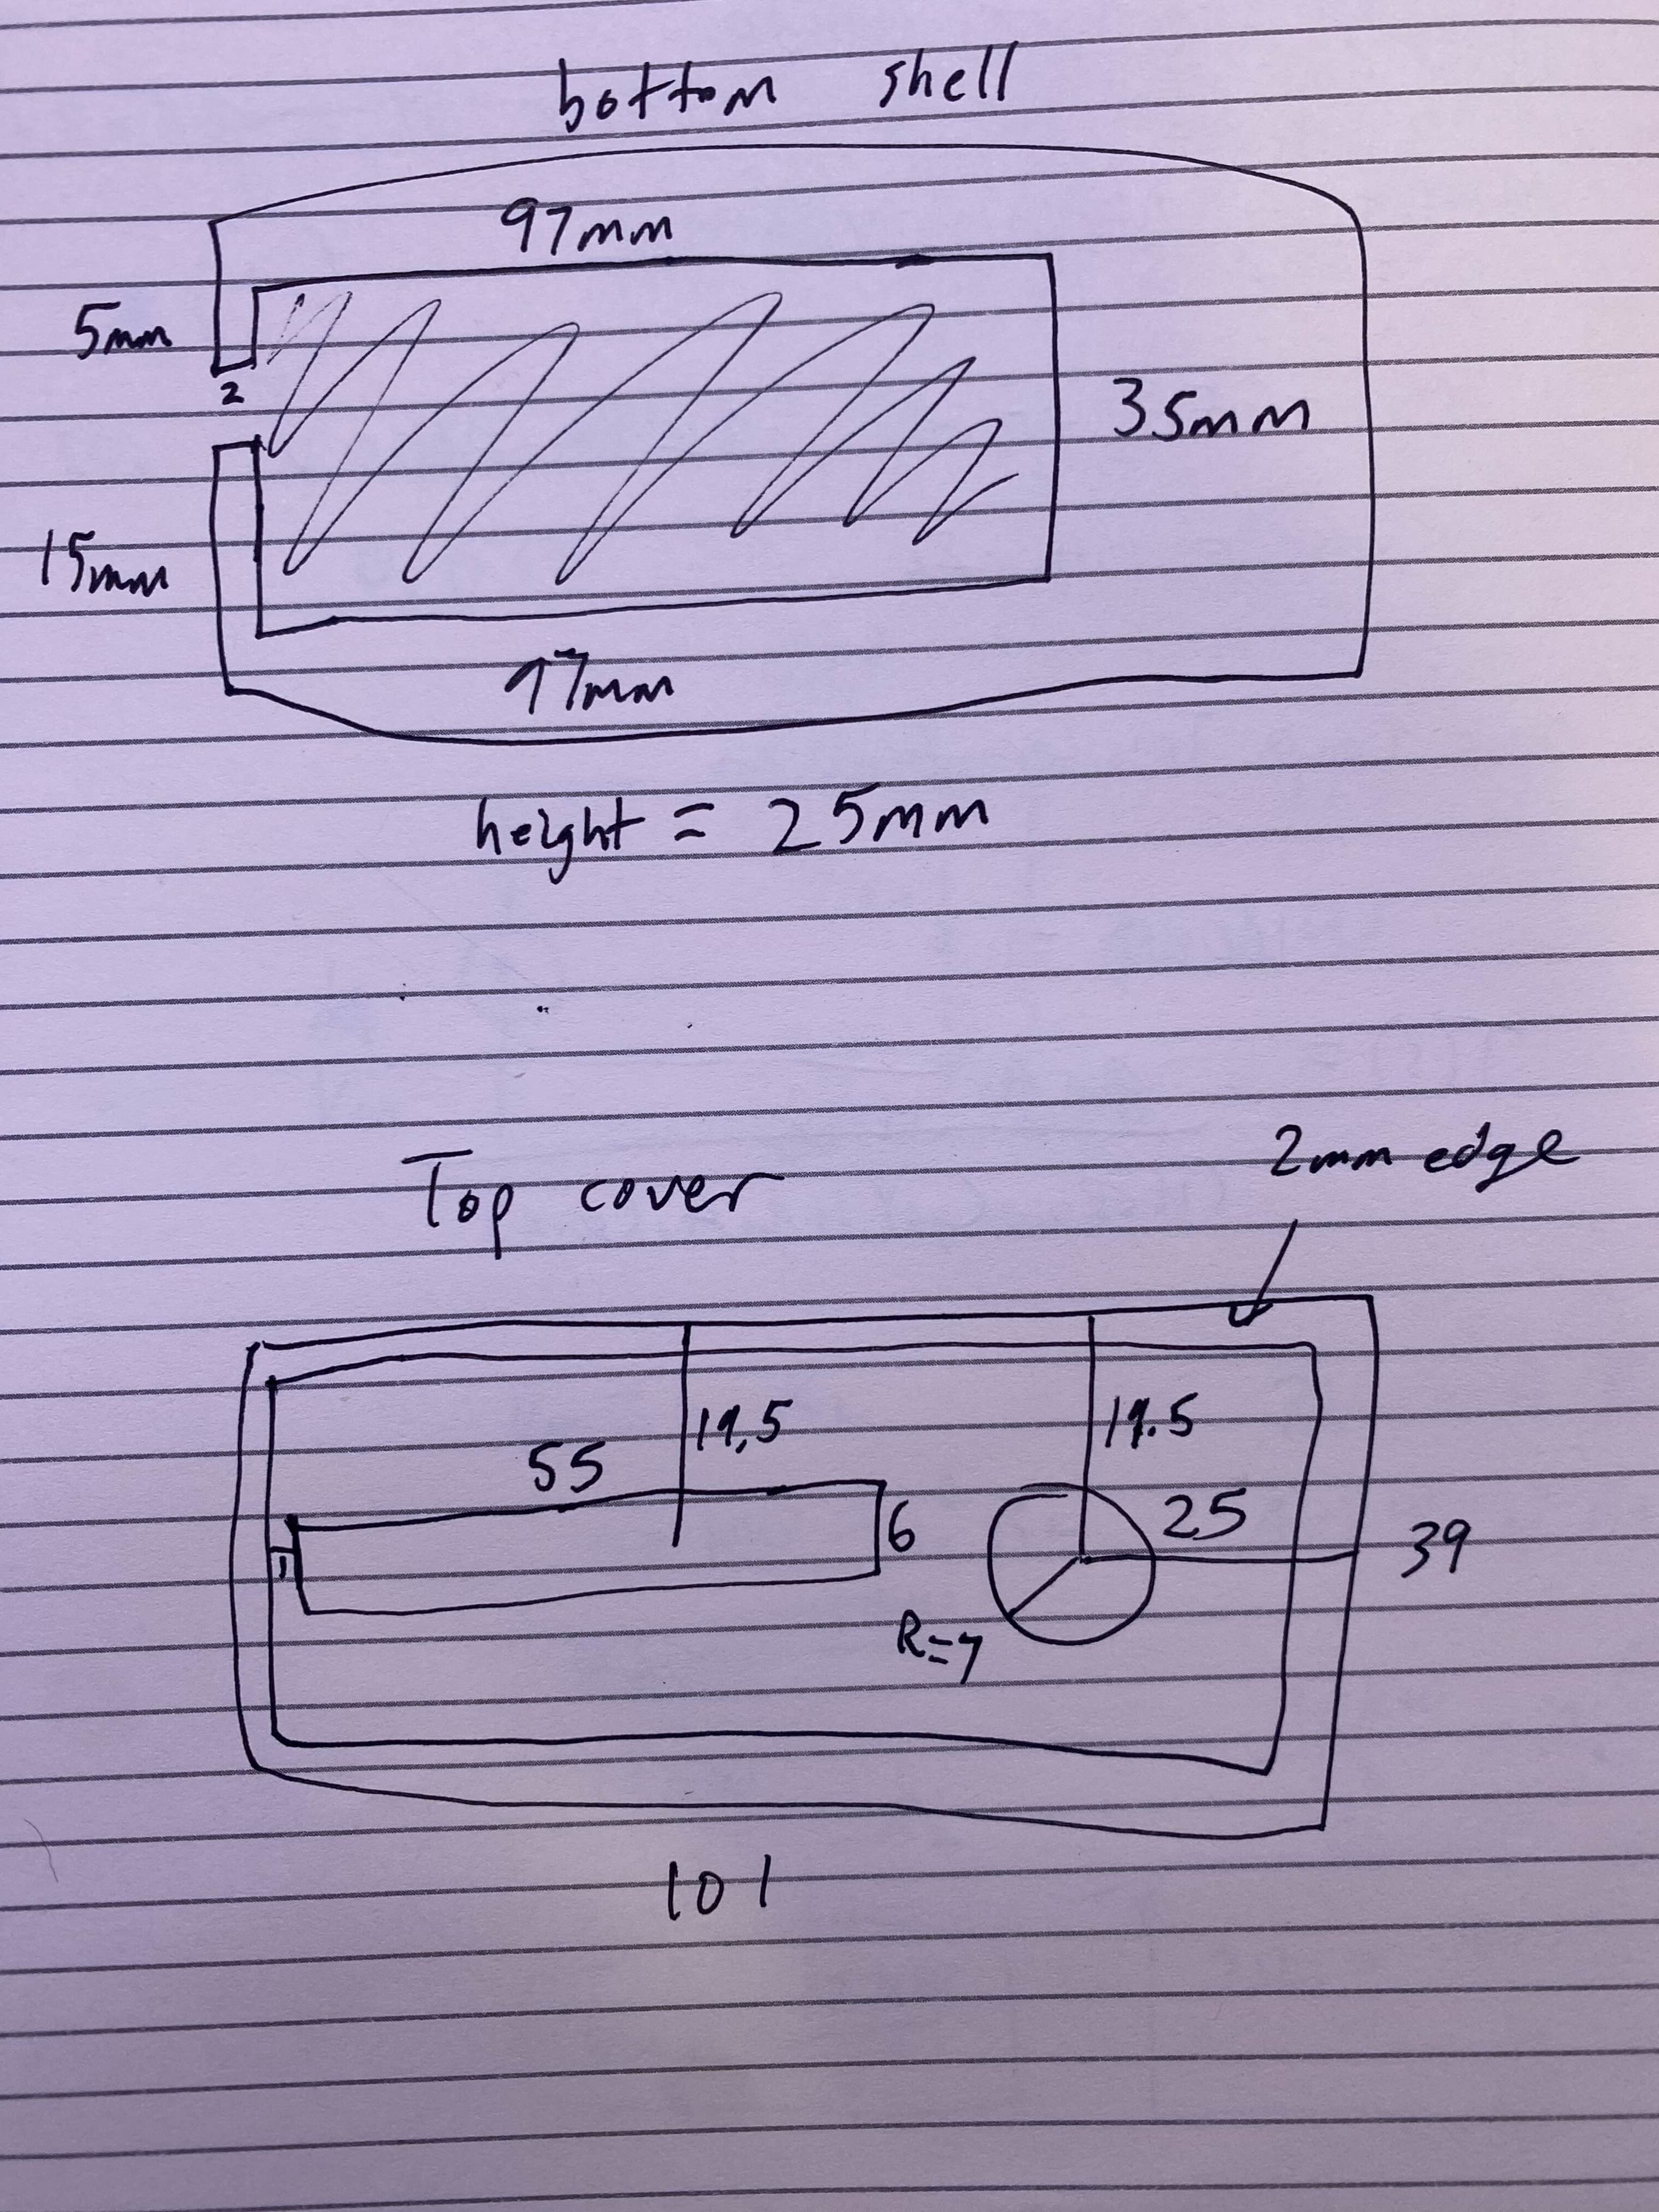 bottom shell
97mm
5mm
2
35mm
15mm
97mm
height = 25mm
Top cover
2mm edge
19,5
19.5
55
25
6
39
1
R=7
101